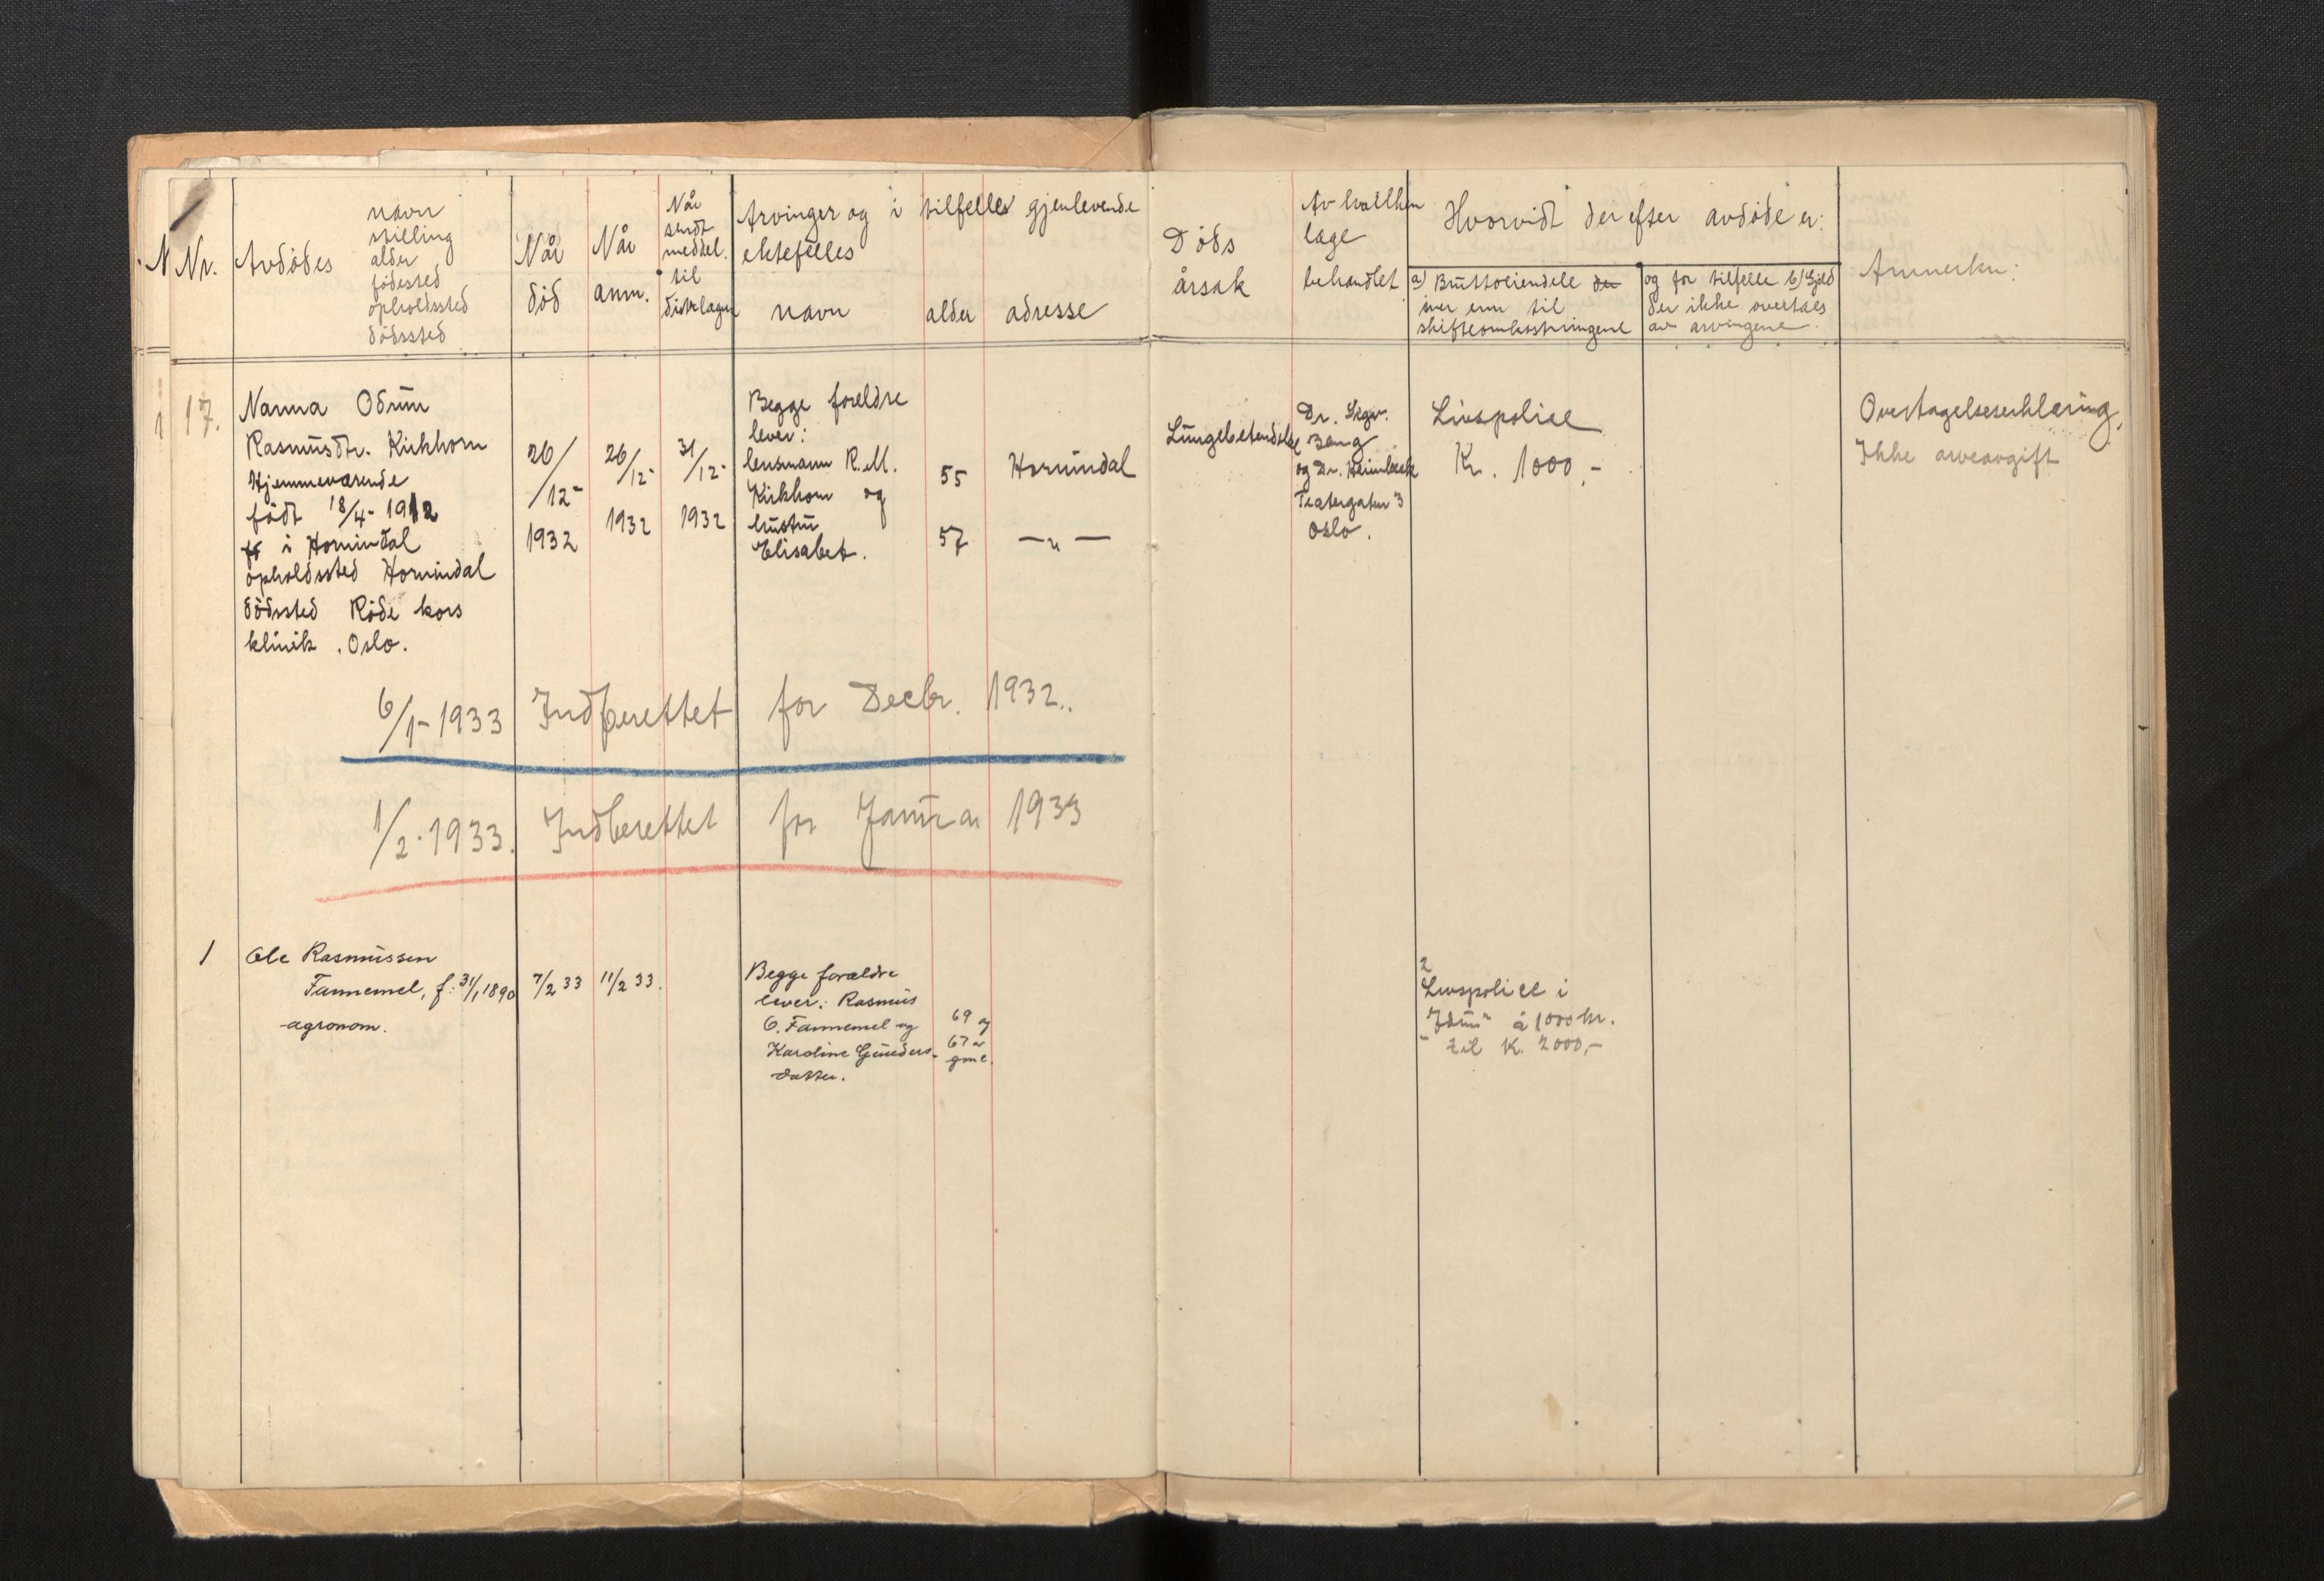 N Nr.
Avdødes
navn
stilling
alder
fødested
opholdssted
dødssted
Når
død
Når
anm.
Når
sendt
meddel.
til
distr.lægen
Arvinger og i tilfelles gjenlevende
ektefelles
navn
alder
adresse
Døds
årsak
Av hvilken
læge
behandlet
Hvorvidt der efter avdøde er:
a) Bruttoeiendele der
over enn til
skifteomkostningene
og for tilfelle b) Gjeld
der ikke overtaes
av arvingene.
Anmerkn:
17.
Nanna Odrun
Rasmusdtr. Kirkhorn
Hjemmeværende
født 18/4- 1912
i Hornindal
opholdssted Hornindal
dødssted Røde kors
klinik . Oslo.
26/12-
1932
26/12-
1932
31/12-
1932
Begge foreldre
lever:
lensmann R.M.
Kirkhorn og
hustru
Elisabet.
55
57
Hornindal
— " —
Lungebetendelse
Dr. Sigv.
Bang
og Dr. Heimbeck
Teatergaten 3
Oslo.
Livspolise
Kr. 1000,-
Overtagelseserklæring,
Ikke arveavgift
6/1- 1933 Indberettet for Decbr. 1932.
1/2. 1933. Indberettet for Januar 1933
1
Ole Rasmussen
Fannemel, f: 31/1 1890
agronom.
7/2 33
11/2 33.
Begge forældre
lever: Rasmus
O. Fannemel og
Karoline Gunders-
datter.
69 og
67 år
gml.
2
Livspolice i
"Idun" á 1000 kr.
til K. 2000,-